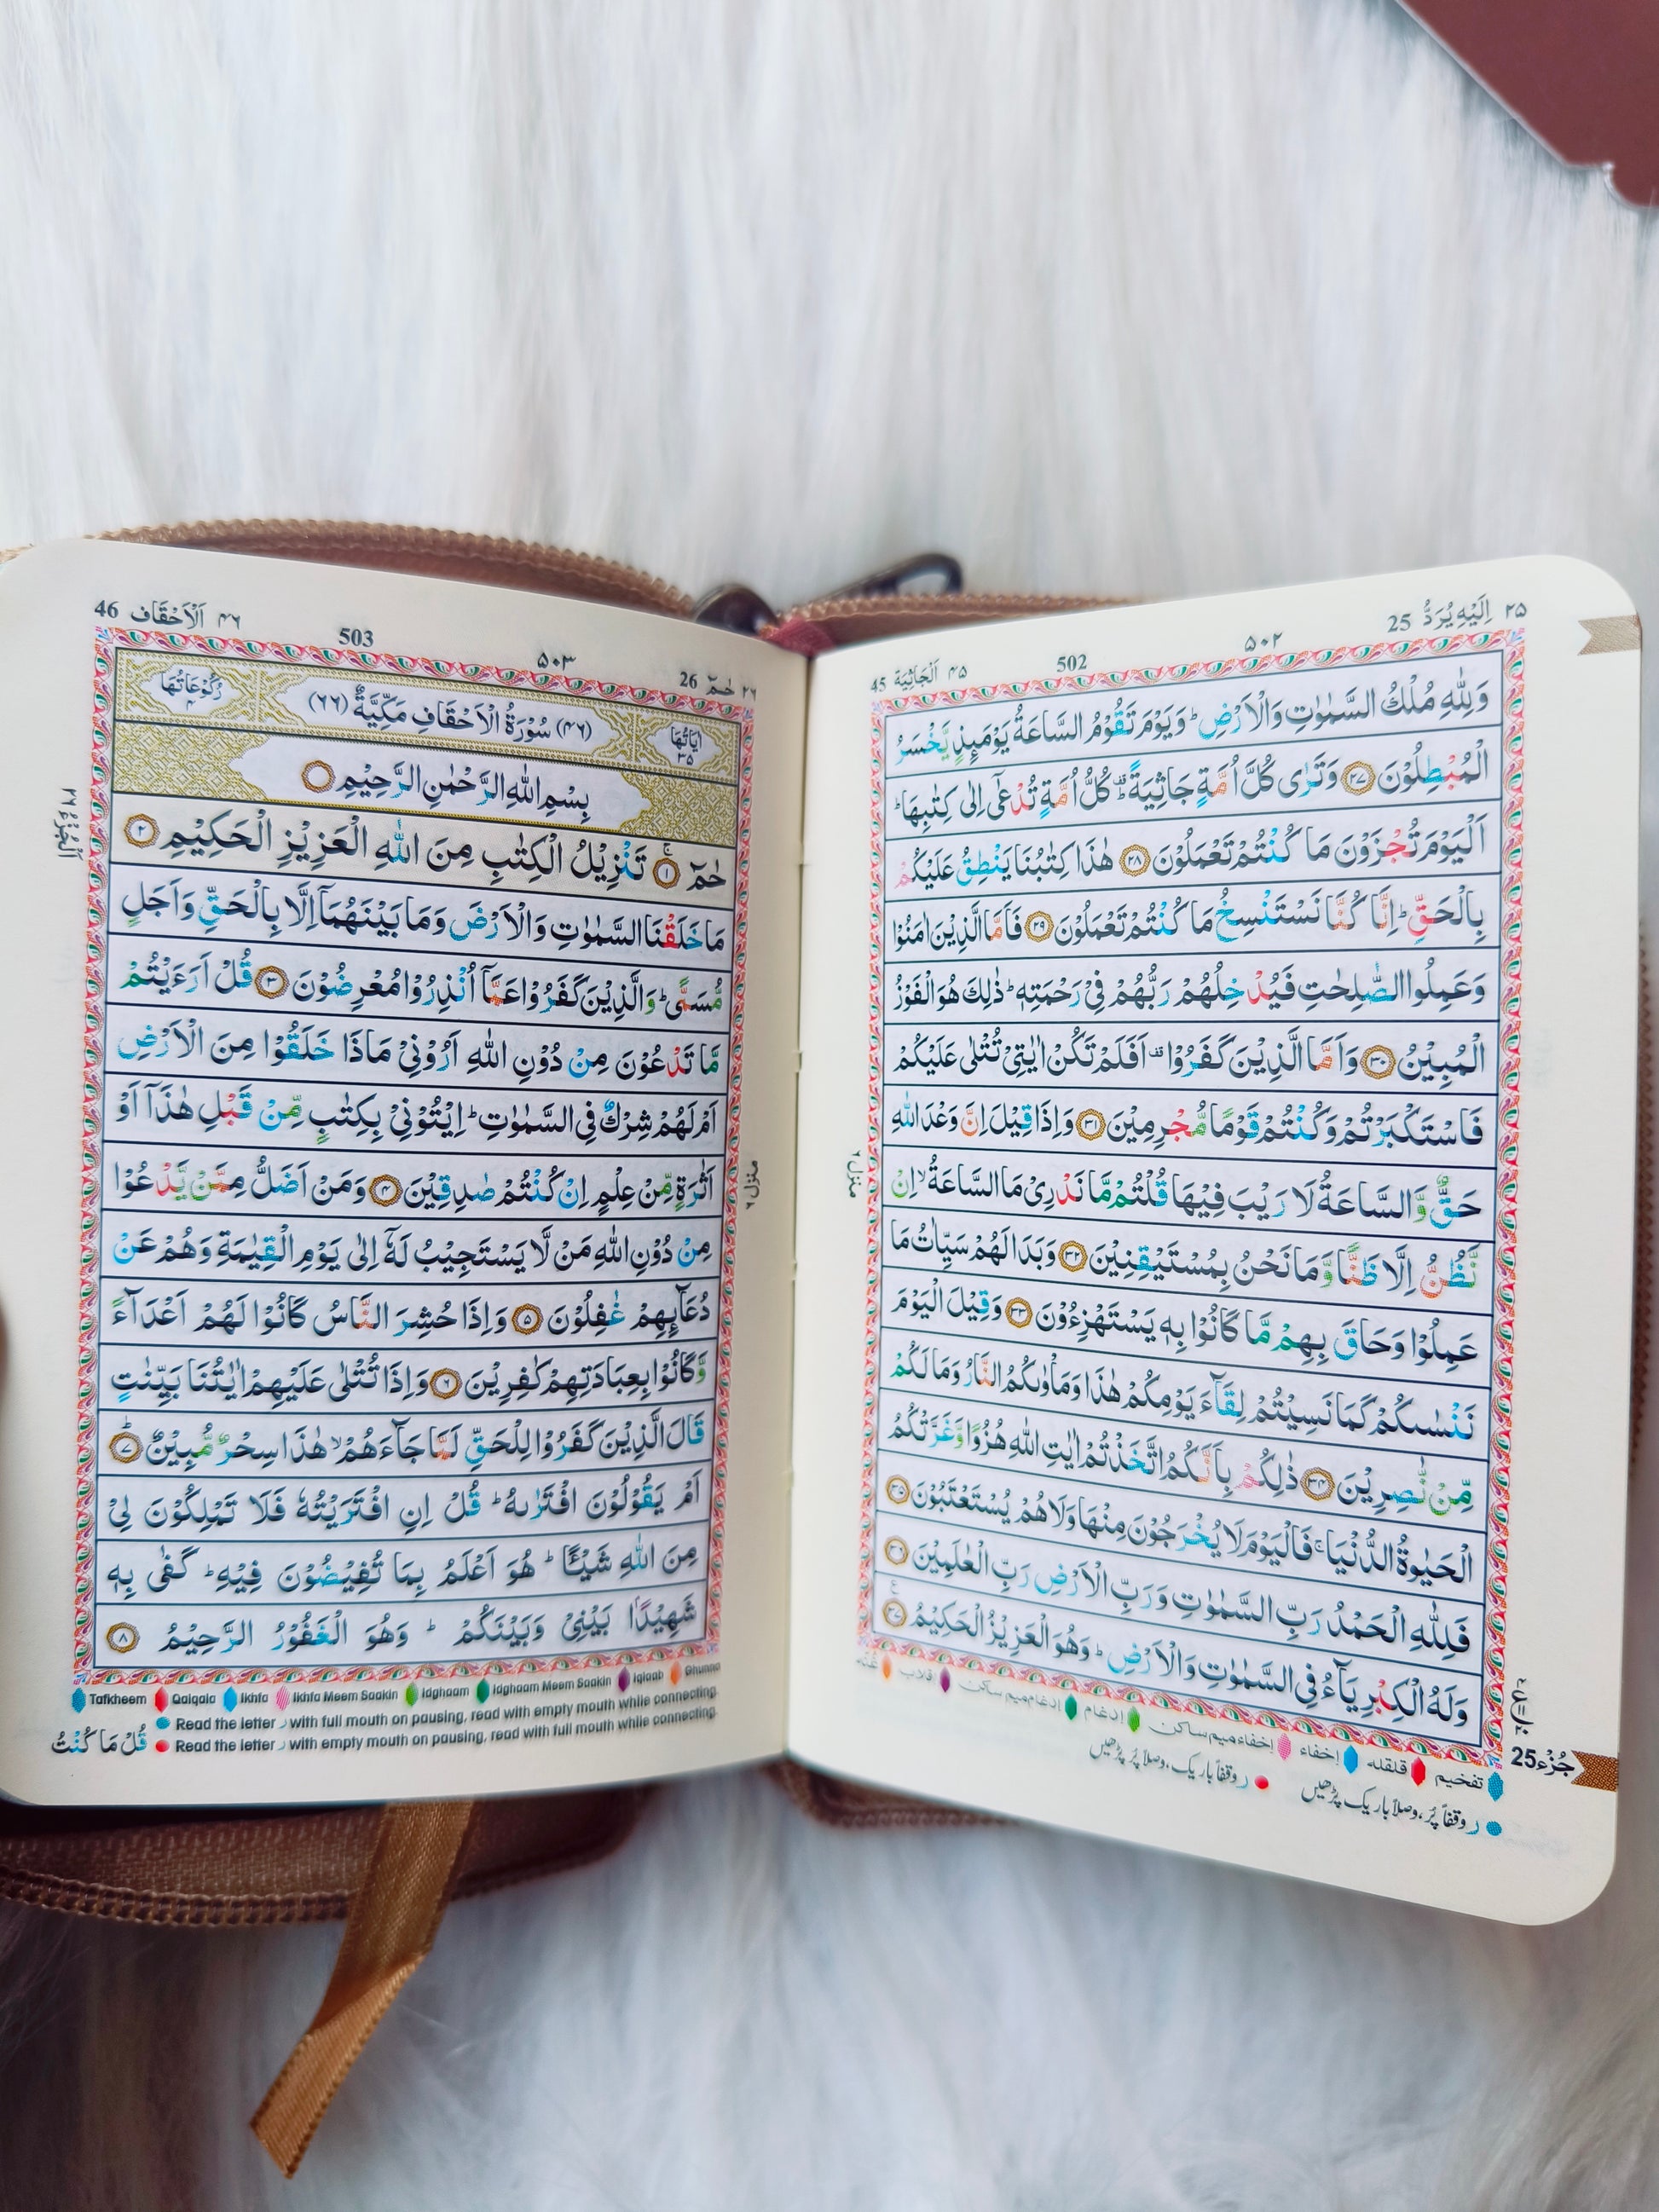 ٢٥ اِلَيْهِ يُرَدُّ 25
٥٠٢
502
٤٥ اَلْجَاثِيَة 45
وَلِلّٰهِ مُلْكُ السَّمٰوٰتِ وَالْاَرْضِ ؕ وَيَوْمَ تَقُوْمُ السَّاعَةُ يَوْمَىِٕذٍ يَّخْسَرُ
الْمُبْطِلُوْنَ ۝٢٧ وَتَرٰى كُلَّ اُمَّةٍ جَاثِيَةً ۫ كُلُّ اُمَّةٍ تُدْعٰۤى اِلٰى كِتٰبِهَا ؕ
اَلْيَوْمَ تُجْزَوْنَ مَا كُنْتُمْ تَعْمَلُوْنَ ۝٢٨ هٰذَا كِتٰبُنَا يَنْطِقُ عَلَيْكُمْ
بِالْحَقِّ ؕ اِنَّا كُنَّا نَسْتَنْسِخُ مَا كُنْتُمْ تَعْمَلُوْنَ ۝٢٩ فَاَمَّا الَّذِيْنَ اٰمَنُوْا
وَعَمِلُوا الصّٰلِحٰتِ فَيُدْخِلُهُمْ رَبُّهُمْ فِيْ رَحْمَتِهٖ ؕ ذٰلِكَ هُوَ الْفَوْزُ
الْمُبِيْنُ ۝٣٠ وَاَمَّا الَّذِيْنَ كَفَرُوْا ۫ اَفَلَمْ تَكُنْ اٰيٰتِيْ تُتْلٰى عَلَيْكُمْ
فَاسْتَكْبَرْتُمْ وَكُنْتُمْ قَوْمًا مُّجْرِمِيْنَ ۝٣١ وَاِذَا قِيْلَ اِنَّ وَعْدَ اللّٰهِ
حَقٌّ وَّالسَّاعَةُ لَا رَيْبَ فِيْهَا قُلْتُمْ مَّا نَدْرِيْ مَا السَّاعَةُ ۙ اِنْ
نَّظُنُّ اِلَّا ظَنًّا وَّمَا نَحْنُ بِمُسْتَيْقِنِيْنَ ۝٣٢ وَبَدَا لَهُمْ سَيِّاٰتُ مَا
عَمِلُوْا وَحَاقَ بِهِمْ مَّا كَانُوْا بِهٖ يَسْتَهْزِءُوْنَ ۝٣٣ وَقِيْلَ الْيَوْمَ
نَنْسٰىكُمْ كَمَا نَسِيْتُمْ لِقَآءَ يَوْمِكُمْ هٰذَا وَمَاْوٰىكُمُ النَّارُ وَمَا لَكُمْ
مِّنْ نّٰصِرِيْنَ ۝٣٤ ذٰلِكُمْ بِاَنَّكُمُ اتَّخَذْتُمْ اٰيٰتِ اللّٰهِ هُزُوًا وَّغَرَّتْكُمُ
الْحَيٰوةُ الدُّنْيَا ۚ فَالْيَوْمَ لَا يُخْرَجُوْنَ مِنْهَا وَلَا هُمْ يُسْتَعْتَبُوْنَ ۝٣٥
فَلِلّٰهِ الْحَمْدُ رَبِّ السَّمٰوٰتِ وَرَبِّ الْاَرْضِ رَبِّ الْعٰلَمِيْنَ ۝٣٦
وَلَهُ الْكِبْرِيَآءُ فِي السَّمٰوٰتِ وَالْاَرْضِ ؕ وَهُوَ الْعَزِيْزُ الْحَكِيْمُ ۝٣٧
منزل ٦
جُزْء 25
تفخيم قلقله إخفاء إخفاء ميم ساكن إدغام إدغام ميم ساكن إقلاب غنّه
ر وقفاً پُر، وصلاً باریک پڑھیں ر وقفاً باریک، وصلاً پُر پڑھیں
٢٦ حٰمٓ 26
٥٠٣
503
٤٦ اَلْاَحْقَاف 46
اٰيَاتُهَا ٣٥
(٤٦) سُوْرَةُ الْاَحْقَافِ مَكِّيَّةٌ (٦٦)
رُكُوْعَاتُهَا ٤
بِسْمِ اللّٰهِ الرَّحْمٰنِ الرَّحِيْمِ
حٰمٓ ۝١ تَنْزِيْلُ الْكِتٰبِ مِنَ اللّٰهِ الْعَزِيْزِ الْحَكِيْمِ ۝٢
مَا خَلَقْنَا السَّمٰوٰتِ وَالْاَرْضَ وَمَا بَيْنَهُمَاۤ اِلَّا بِالْحَقِّ وَاَجَلٍ
مُّسَمًّى ؕ وَالَّذِيْنَ كَفَرُوْا عَمَّاۤ اُنْذِرُوْا مُعْرِضُوْنَ ۝٣ قُلْ اَرَءَيْتُمْ
مَّا تَدْعُوْنَ مِنْ دُوْنِ اللّٰهِ اَرُوْنِيْ مَاذَا خَلَقُوْا مِنَ الْاَرْضِ
اَمْ لَهُمْ شِرْكٌ فِي السَّمٰوٰتِ ؕ اِيْتُوْنِيْ بِكِتٰبٍ مِّنْ قَبْلِ هٰذَاۤ اَوْ
اَثٰرَةٍ مِّنْ عِلْمٍ اِنْ كُنْتُمْ صٰدِقِيْنَ ۝٤ وَمَنْ اَضَلُّ مِمَّنْ يَّدْعُوْا
مِنْ دُوْنِ اللّٰهِ مَنْ لَّا يَسْتَجِيْبُ لَهٗۤ اِلٰى يَوْمِ الْقِيٰمَةِ وَهُمْ عَنْ
دُعَآىِٕهِمْ غٰفِلُوْنَ ۝٥ وَاِذَا حُشِرَ النَّاسُ كَانُوْا لَهُمْ اَعْدَآءً
وَّكَانُوْا بِعِبَادَتِهِمْ كٰفِرِيْنَ ۝٦ وَاِذَا تُتْلٰى عَلَيْهِمْ اٰيٰتُنَا بَيِّنٰتٍ
قَالَ الَّذِيْنَ كَفَرُوْا لِلْحَقِّ لَمَّا جَآءَهُمْ ۙ هٰذَا سِحْرٌ مُّبِيْنٌ ؕ ۝٧
اَمْ يَقُوْلُوْنَ افْتَرٰىهُ ؕ قُلْ اِنِ افْتَرَيْتُهٗ فَلَا تَمْلِكُوْنَ لِيْ
مِنَ اللّٰهِ شَيْـًٔا ؕ هُوَ اَعْلَمُ بِمَا تُفِيْضُوْنَ فِيْهِ ؕ كَفٰى بِهٖ
شَهِيْدًا بَيْنِيْ وَبَيْنَكُمْ ؕ وَهُوَ الْغَفُوْرُ الرَّحِيْمُ ۝٨
الجزء ٢٦
منزل ٦
Tafkheem Qalqala Ikhfa Ikhfa Meem Saakin Idghaam Idghaam Meem Saakin Iqlaab Ghunna
Read the letter ر with full mouth on pausing, read with empty mouth while connecting.
Read the letter ر with empty mouth on pausing, read with full mouth while connecting.
قُلْ مَا كُنْتُ